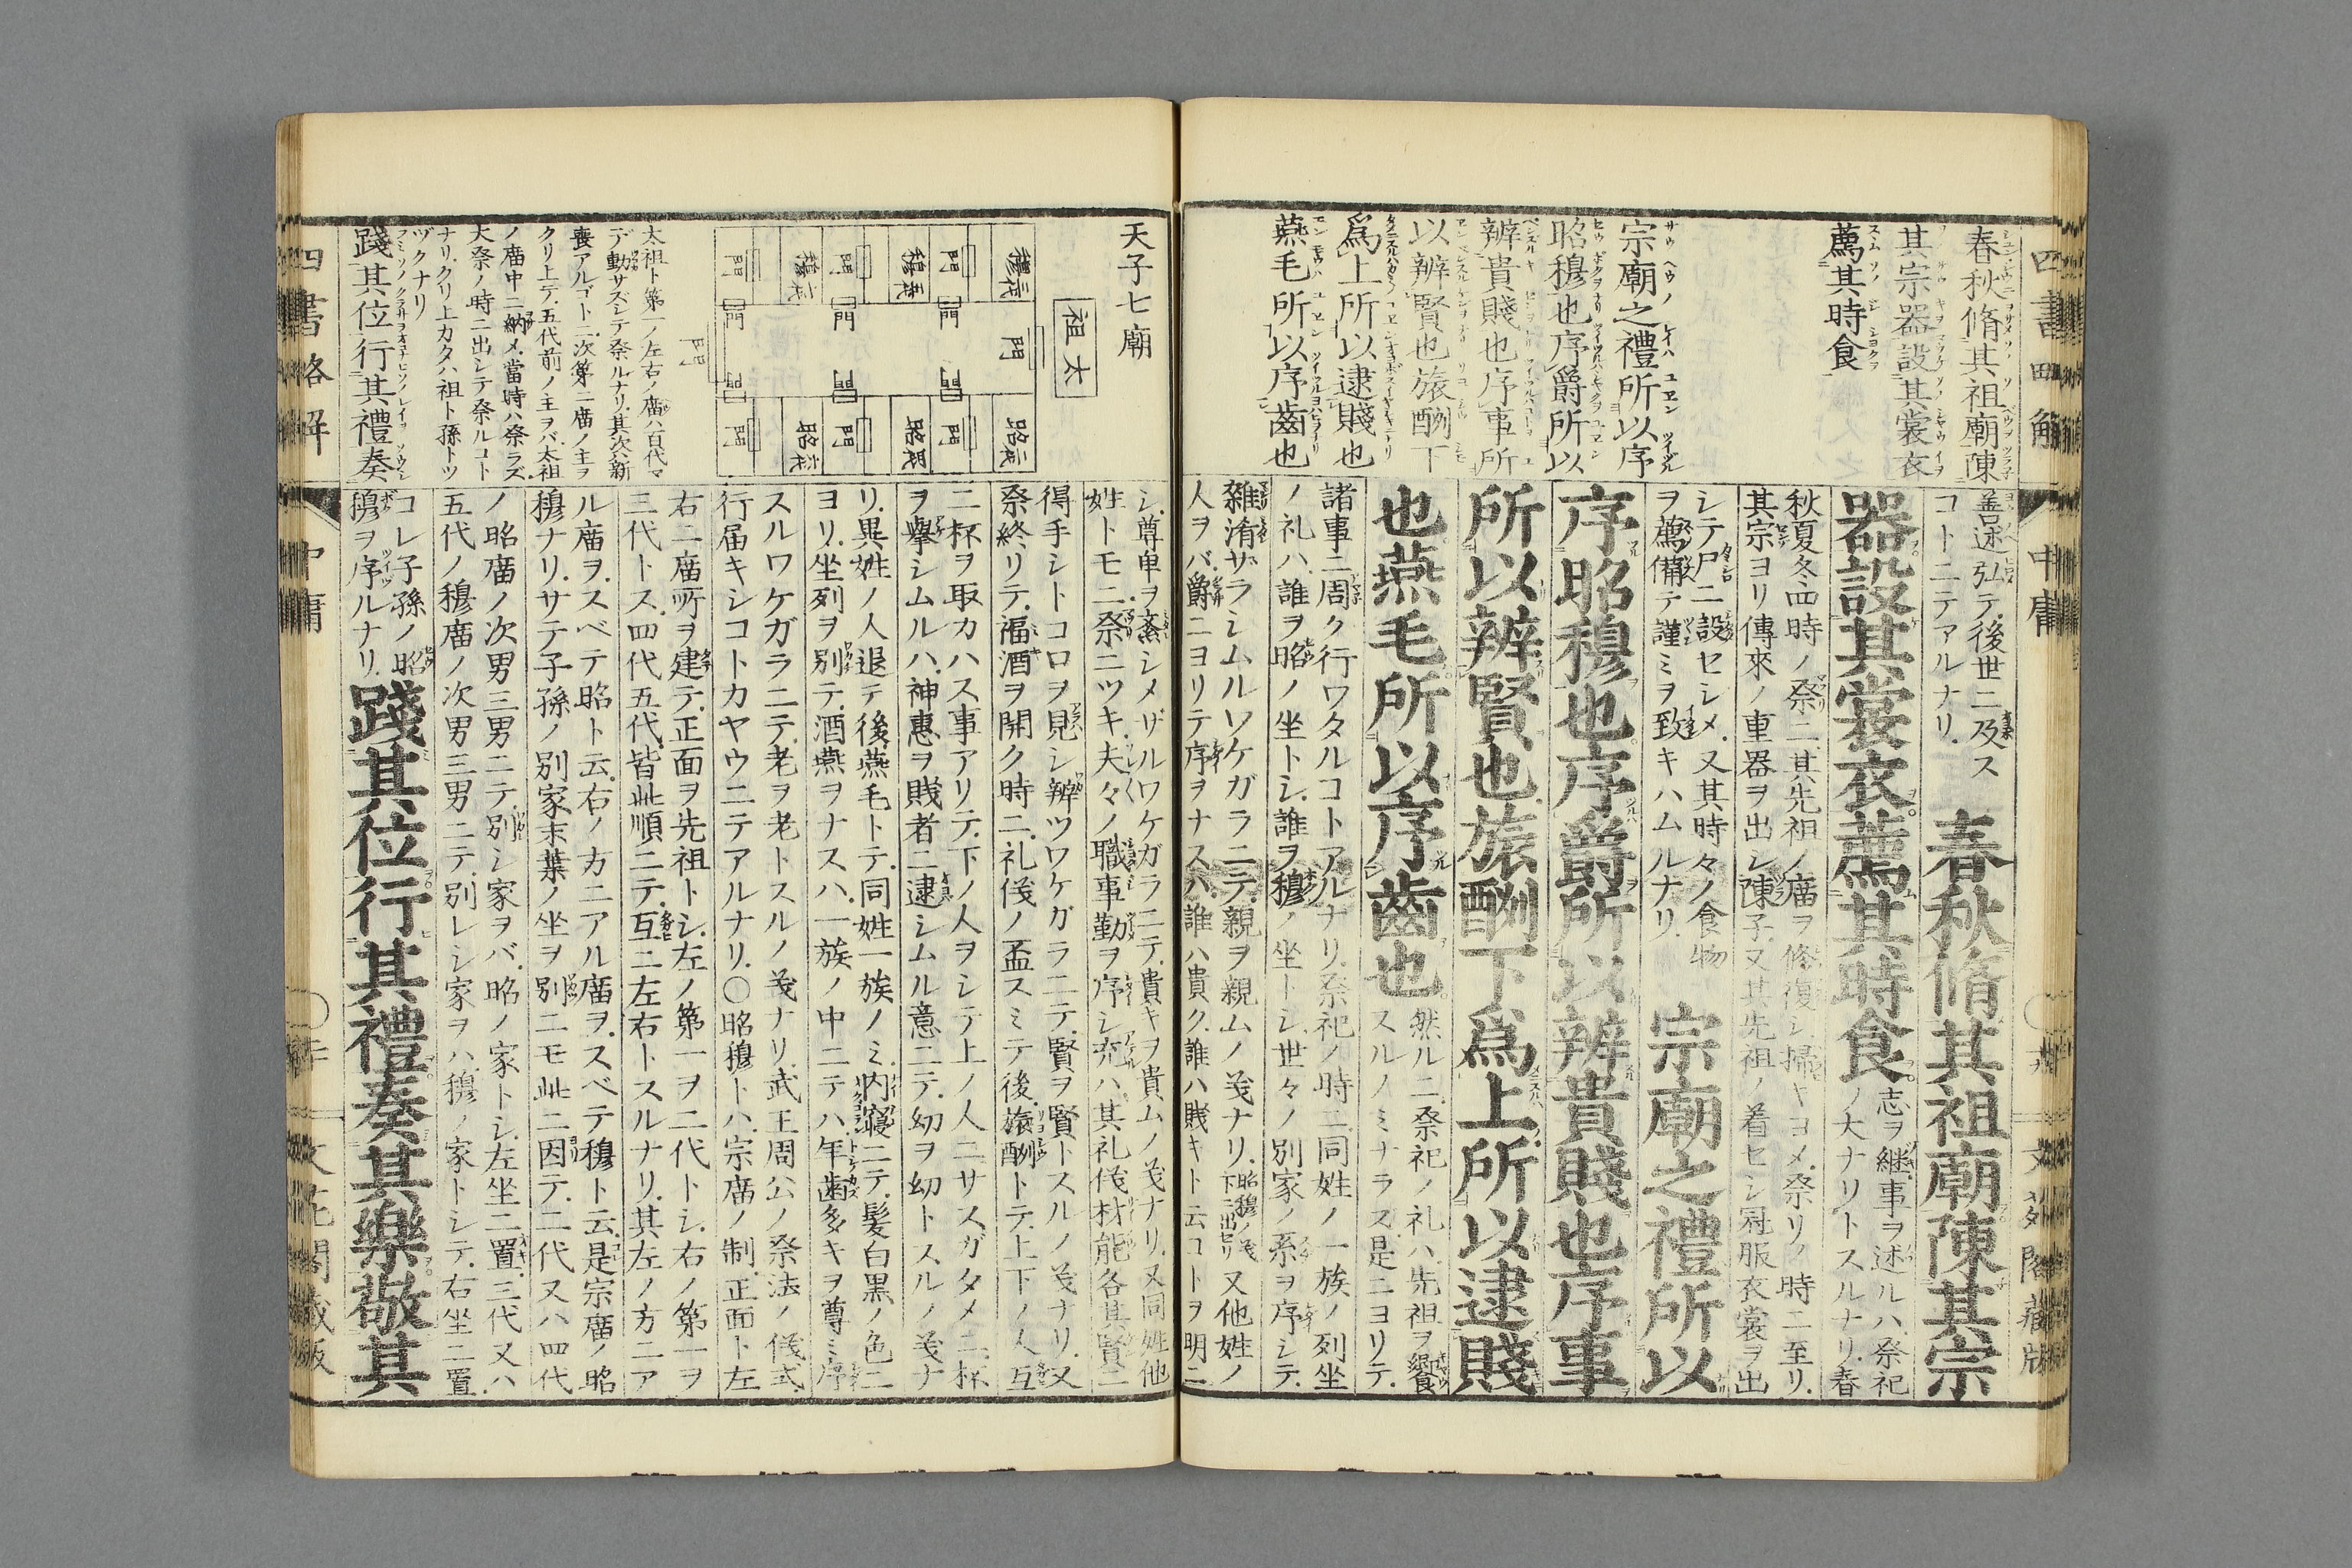 四書略解
中庸
春秋脩其祖廟陳
其宗器設其裳衣
薦其時食
宗廟之禮所以序
昭穆也序爵所以
辨貴賤也序事所
以辨賢也旅酬下
爲上所以逮賤也
燕毛所以序齒也
善述弘テ後世ニ及ス
コトニテアルナリ
春秋脩其祖廟陳其宗
器設其裳衣薦其時食
志ヲ継事ヲ述ルハ祭祀
ノ大ナリトスルナリ春
秋夏冬四時ノ祭ニ其先祖ノ廣ヲ修復シ掃キヨメ祭リノ時ニ至リ
其宗ヨリ傳來ノ重器ヲ出シ陳子又其先祖ノ着セシ冠服衣裳ヲ出
シテ尸ニ設セシメ又其時々ノ食物
ヲ薦備テ謹ミヲ致キハムルナリ
宗廟之禮所以
序昭穆也序爵所以辨貴賤也序事
所以辨賢也旅酬下爲上所以逮賤
也燕毛所以序齒也
然ルニ祭祀ノ礼ハ先祖ヲ饗
スルノミナラス是ニヨリテ
諸事ニ周ク行ワタルコトアルナリ祭祀ノ時ニ同姓ノ一族ノ列坐
ノ礼ハ誰ヲ昭ノ坐トシ誰ヲ穆ノ坐トシ世々ノ別家ノ系ヲ序シテ
雑淆サラシムルワケガラニテ親ヲ親ムノ義ナリ昭穆ノ義下ニ出セリ又他姓ノ
人ヲバ爵ニヨリテ序ヲナスハ誰ハ貴ク誰ハ賤キト云コトヲ明ニ
天子七廟
太祖
門
昭二廟
昭四廟
昭六廟
穆三廟
穆五廟
穆七廟
太祖ト第一ノ左右ノ廣ハ百代マ
デ動サズシテ祭ルナリ其次ハ新
喪アルゴトニ次第ニ廣ノ主ヲ
クリ上テ五代前ノ主ヲバ太祖
ノ廣中ニ納メ當時ハ祭ラズ
大祭ノ時ニ出シテ祭ルコト
ナリクリ上カタハ祖ト孫トツ
ヅクナリ
踐其位行其禮奏
シ尊卑ヲ紊シメザルワケガラニテ貴キヲ貴ムノ義ナリ又同姓他
姓トモニ祭ニツキ夫々ノ職事勤ヲ序シ充ハ其礼儀材能各其賢ニ
得手シトコロヲ見シ辨ツワケガラニテ賢ヲ賢トスルノ義ナリ又
祭終リテ福酒ヲ開ク時ニ礼儀ノ盃スミテ後旅酬トテ上下ノ人互
ニ杯ヲ取カハス事アリテ下ノ人ヲシテ上ノ人ニサスガタメニ杯
ヲ擧シムルハ神惠ヲ賤者ニ逮シムル意ニテ幼ヲ幼トスルノ義ナ
リ異姓ノ人退テ後燕毛トテ同姓一族ノミ内寢ニテ髪白黒ノ色ニ
ヨリ坐列ヲ別テ酒燕ヲナスハ一族ノ中ニテハ年歯多キヲ尊ミ序
スルワケガラニテ老ヲ老トスルノ義ナリ武王周公ノ祭法ノ儀式
行届キシコトカヤウニテアルナリ〇昭穆トハ宗廣ノ制正面ト左
右ニ廣所ヲ建テ正面ヲ先祖トシ左ノ第一ヲ二代トシ右ノ第一ヲ
三代トス四代五代皆此順ニテ互ニ左右トスルナリ其左ノ方ニア
ル廣ヲスベテ昭ト云右ノ方ニアル廣ヲスベテ穆ト云是宗廣ノ昭
穆ナリサテ子孫ノ別家末葉ノ坐ヲ別ニモ此ニ因テ二代又ハ四代
ノ昭廣ノ次男三男ニテ別シ家ヲバ昭ノ家トシ左坐ニ置三代又ハ
五代ノ穆廣ノ次男三男ニテ別レシ家ヲハ穆ノ家トシテ右坐ニ置
コレ子孫ノ昭
穆ヲ序ルナリ
踐其位行其禮奏其樂敬其
四書略解
中庸